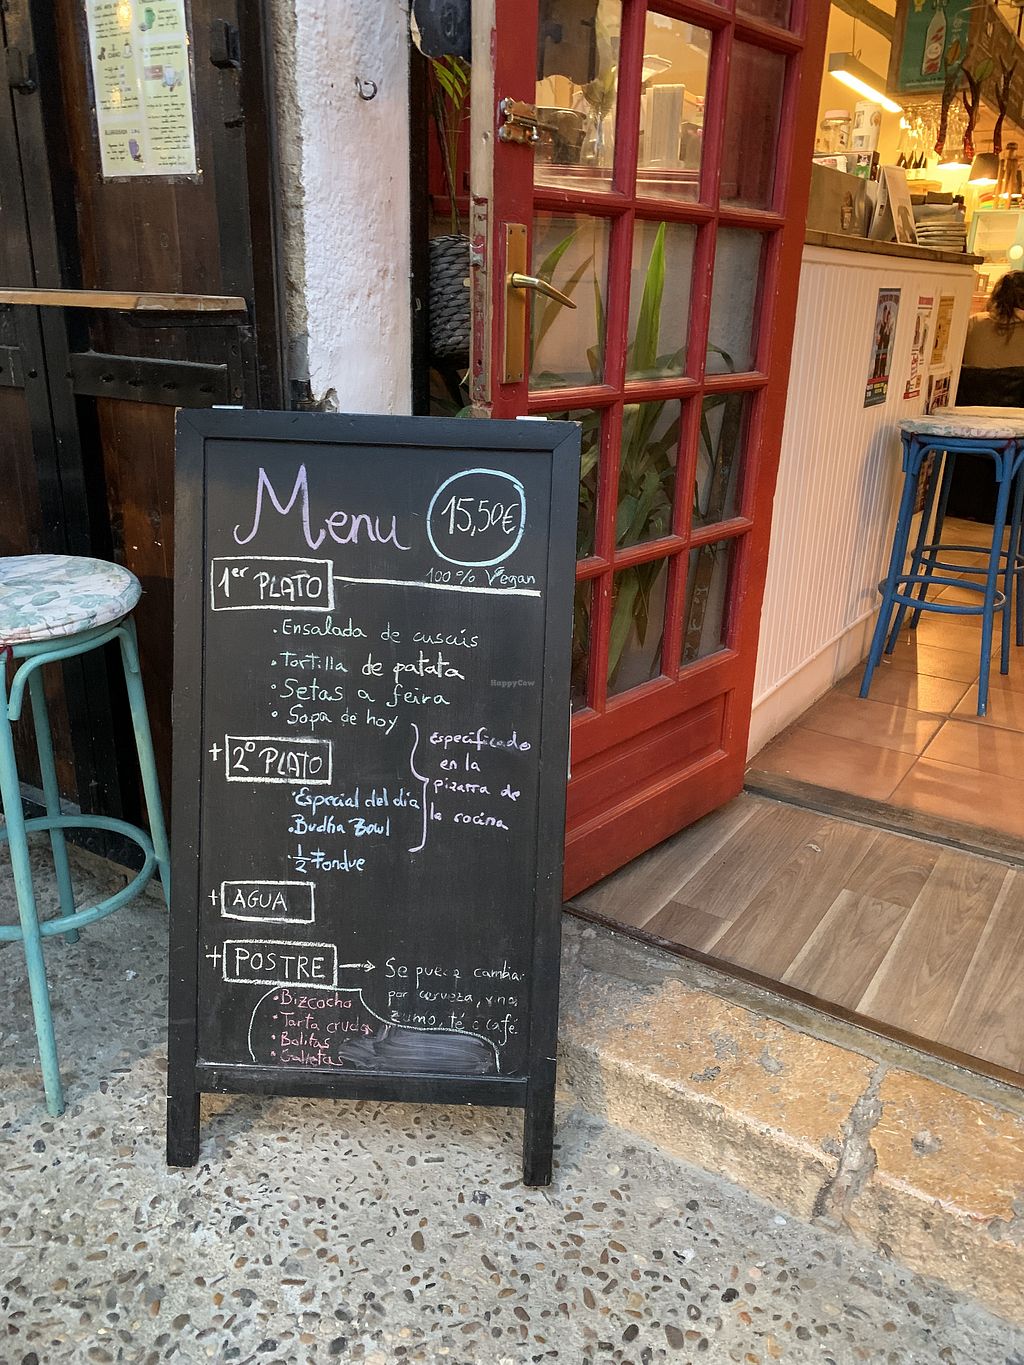 Menu
15,50€
100% Vegan
1er PLATO
• Ensalada de cuscús
• Tortilla de patata
• Setas a feira
• Sopa de hoy
+ 2º PLATO
• Especial del dia
• Budha Bowl
• 1/2 Fondue
Especificado
en la
pizarra de
la cocina
+ AGUA
+ POSTRE → Se puede cambiar
por cerveza, vino,
zumo, té o café.
• Bizcocho
• Tarta cruda
• Bolitas
• Galletas
HappyCow